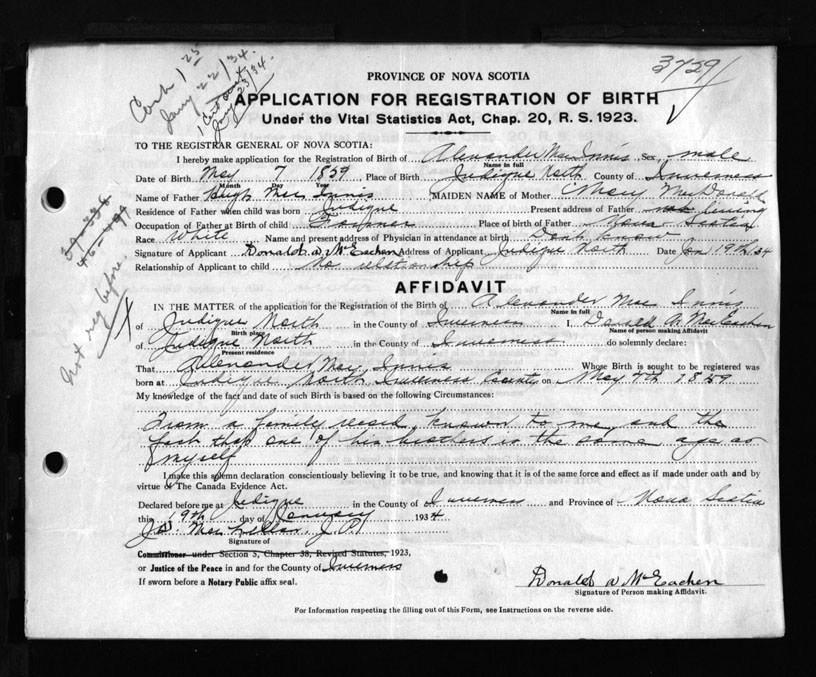 Jany 22/34.
1 Cert sent
Jany 23/34.
3729
PROVINCE OF NOVA SCOTIA
APPLICATION FOR REGISTRATION OF BIRTH
Under the Vital Statistics Act, Chap. 20, R. S. 1923.
TO THE REGISTRAR GENERAL OF NOVA SCOTIA:
I hereby make application for the Registration of Birth of Alexander Mac Innis Sex male
Name in full
Date of Birth May 7 1859 Place of Birth Judique North County of Inverness
Month Day Year
Name of Father Hugh Mac Innis MAIDEN NAME of Mother Mary MacDonald
Residence of Father when child was born Judique Present address of Father not living
Occupation of Father at Birth of child Farmer Place of Birth of Father Nova Scotia
Race White Name and present address of Physician in attendance at birth Dont know
Signature of Applicant Donald A. McEachen Address of Applicant Judique North Date Jan 19th 34
Relationship of Applicant to child No relationship
Not reg before
AFFIDAVIT
IN THE MATTER of the application for the Registration of the Birth of Alexander Mac Innis
Name in full
of Judique North in the County of Inverness I, Donald A. MacEachen
Birth place Name of person making Affidavit
of Judique North in the County of Inverness do solemnly declare:
Present residence
That Alexander Mac Innis Whose Birth is sought to be registered was
born at Judique North Inverness County on May 7th 1859
My knowledge of the fact and date of such Birth is based on the following Circumstances:
From a family record known to me and the
fact that one of his brothers is the same age as
myself
I make this solemn declaration conscientiously believing it to be true, and knowing that it is of the same force and effect as if made under oath and by
virtue of The Canada Evidence Act.
Declared before me at Judique in the County of Inverness and Province of Nova Scotia
this 19th day of January 1934
J.P.
Signature of
Commissioner under Section 5, Chapter 38, Revised Statutes, 1923,
or Justice of the Peace in and for the County of Inverness
If sworn before a Notary Public affix seal.
Donald A McEachen
Signature of Person making Affidavit.
For Information respecting the filling out of this Form, see Instructions on the reverse side.